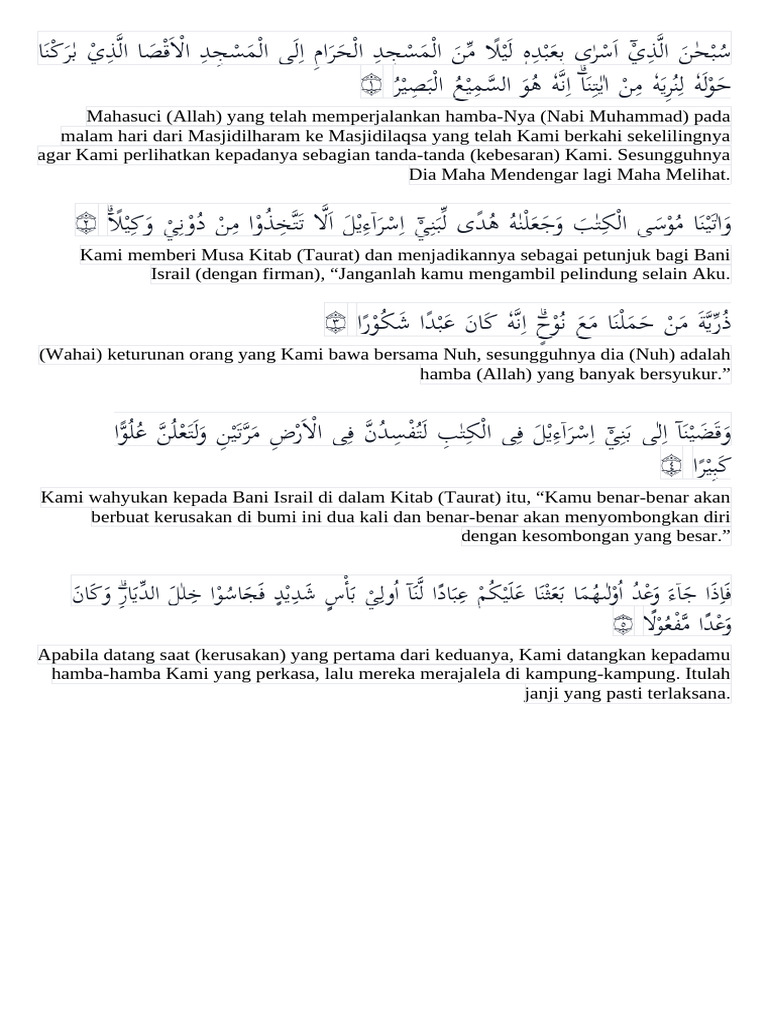 سُبْحٰنَ الَّذِيْٓ اَسْرٰى بِعَبْدِهٖ لَيْلًا مِّنَ الْمَسْجِدِ الْحَرَامِ اِلَى الْمَسْجِدِ الْاَقْصَا الَّذِيْ بٰرَكْنَا
حَوْلَهٗ لِنُرِيَهٗ مِنْ اٰيٰتِنَاۗ اِنَّهٗ هُوَ السَّمِيْعُ الْبَصِيْرُ ۝١
Mahasuci (Allah) yang telah memperjalankan hamba-Nya (Nabi Muhammad) pada
malam hari dari Masjidilharam ke Masjidilaqsa yang telah Kami berkahi sekelilingnya
agar Kami perlihatkan kepadanya sebagian tanda-tanda (kebesaran) Kami. Sesungguhnya
Dia Maha Mendengar lagi Maha Melihat.
وَاٰتَيْنَا مُوْسَى الْكِتٰبَ وَجَعَلْنٰهُ هُدًى لِّبَنِيْٓ اِسْرَاۤءِيْلَ اَلَّا تَتَّخِذُوْا مِنْ دُوْنِيْ وَكِيْلًاۗ ۝٢
Kami memberi Musa Kitab (Taurat) dan menjadikannya sebagai petunjuk bagi Bani
Israil (dengan firman), “Janganlah kamu mengambil pelindung selain Aku.
ذُرِّيَّةَ مَنْ حَمَلْنَا مَعَ نُوْحٍۗ اِنَّهٗ كَانَ عَبْدًا شَكُوْرًا ۝٣
(Wahai) keturunan orang yang Kami bawa bersama Nuh, sesungguhnya dia (Nuh) adalah
hamba (Allah) yang banyak bersyukur.”
وَقَضَيْنَآ اِلٰى بَنِيْٓ اِسْرَاۤءِيْلَ فِى الْكِتٰبِ لَتُفْسِدُنَّ فِى الْاَرْضِ مَرَّتَيْنِ وَلَتَعْلُنَّ عُلُوًّا
كَبِيْرًا ۝٤
Kami wahyukan kepada Bani Israil di dalam Kitab (Taurat) itu, “Kamu benar-benar akan
berbuat kerusakan di bumi ini dua kali dan benar-benar akan menyombongkan diri
dengan kesombongan yang besar.”
فَاِذَا جَاۤءَ وَعْدُ اُوْلٰىهُمَا بَعَثْنَا عَلَيْكُمْ عِبَادًا لَّنَآ اُولِيْ بَأْسٍ شَدِيْدٍ فَجَاسُوْا خِلٰلَ الدِّيَارِۗ وَكَانَ
وَعْدًا مَّفْعُوْلًا ۝٥
Apabila datang saat (kerusakan) yang pertama dari keduanya, Kami datangkan kepadamu
hamba-hamba Kami yang perkasa, lalu mereka merajalela di kampung-kampung. Itulah
janji yang pasti terlaksana.